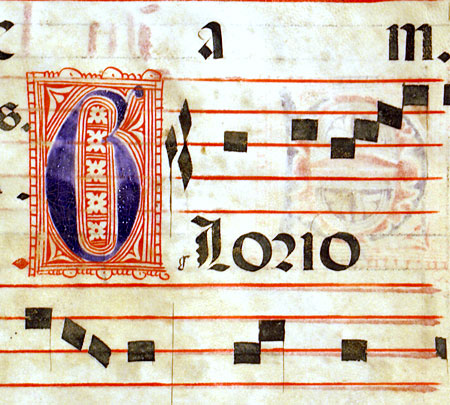 a m.
s.
G g Lorio